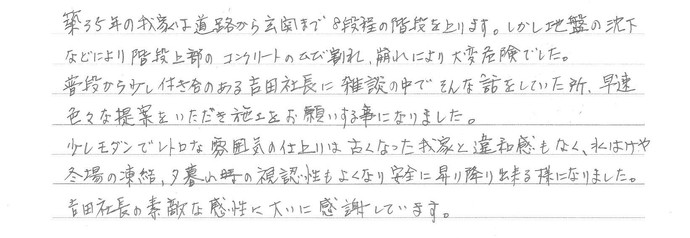 築35年の我家は道路から玄関まで8段程の階段を上ります。しかし地盤の沈下
などにより階段上部のコンクリートのひび割れ、崩れにより大変危険でした。
普段から少し付き合のある吉田社長に雑談の中でそんな話をしていた所、早速
色々な提案をいただき施工をお願いする事になりました。
少しモダンでレトロな雰囲気の仕上りは古くなった我家と違和感もなく、水はけや
冬場の凍結、夕暮れ時の視認性もよくなり安全に昇り降り出来る様になりました。
吉田社長の素敵な感性に大いに感謝しています。